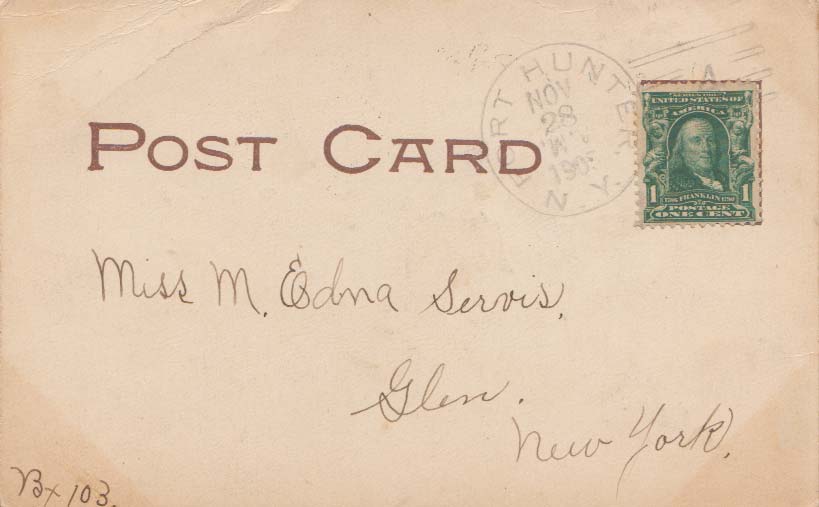 FORT HUNTER N.Y.
NOV
28
A
SERIES 1902
UNITED STATES OF
AMERICA
1 1
1706 FRANKLIN 1790
POSTAGE
ONE CENT
POST CARD
Miss M. Edna Servis.
Glen.
New York.
Bx 103.